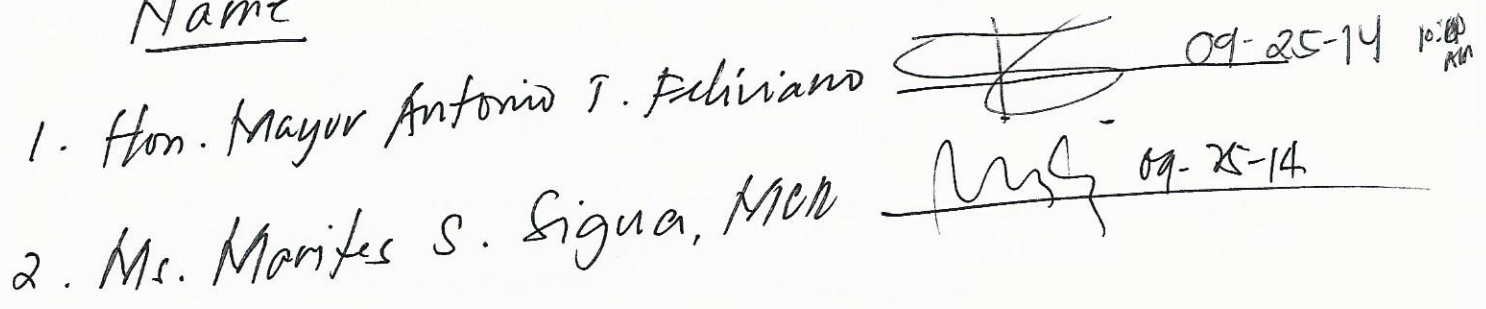 Name
1. Hon. Mayor Antonio T. Feliciano 09-25-14
2. Ms. Marites S. Sigua, MCR 09-25-14